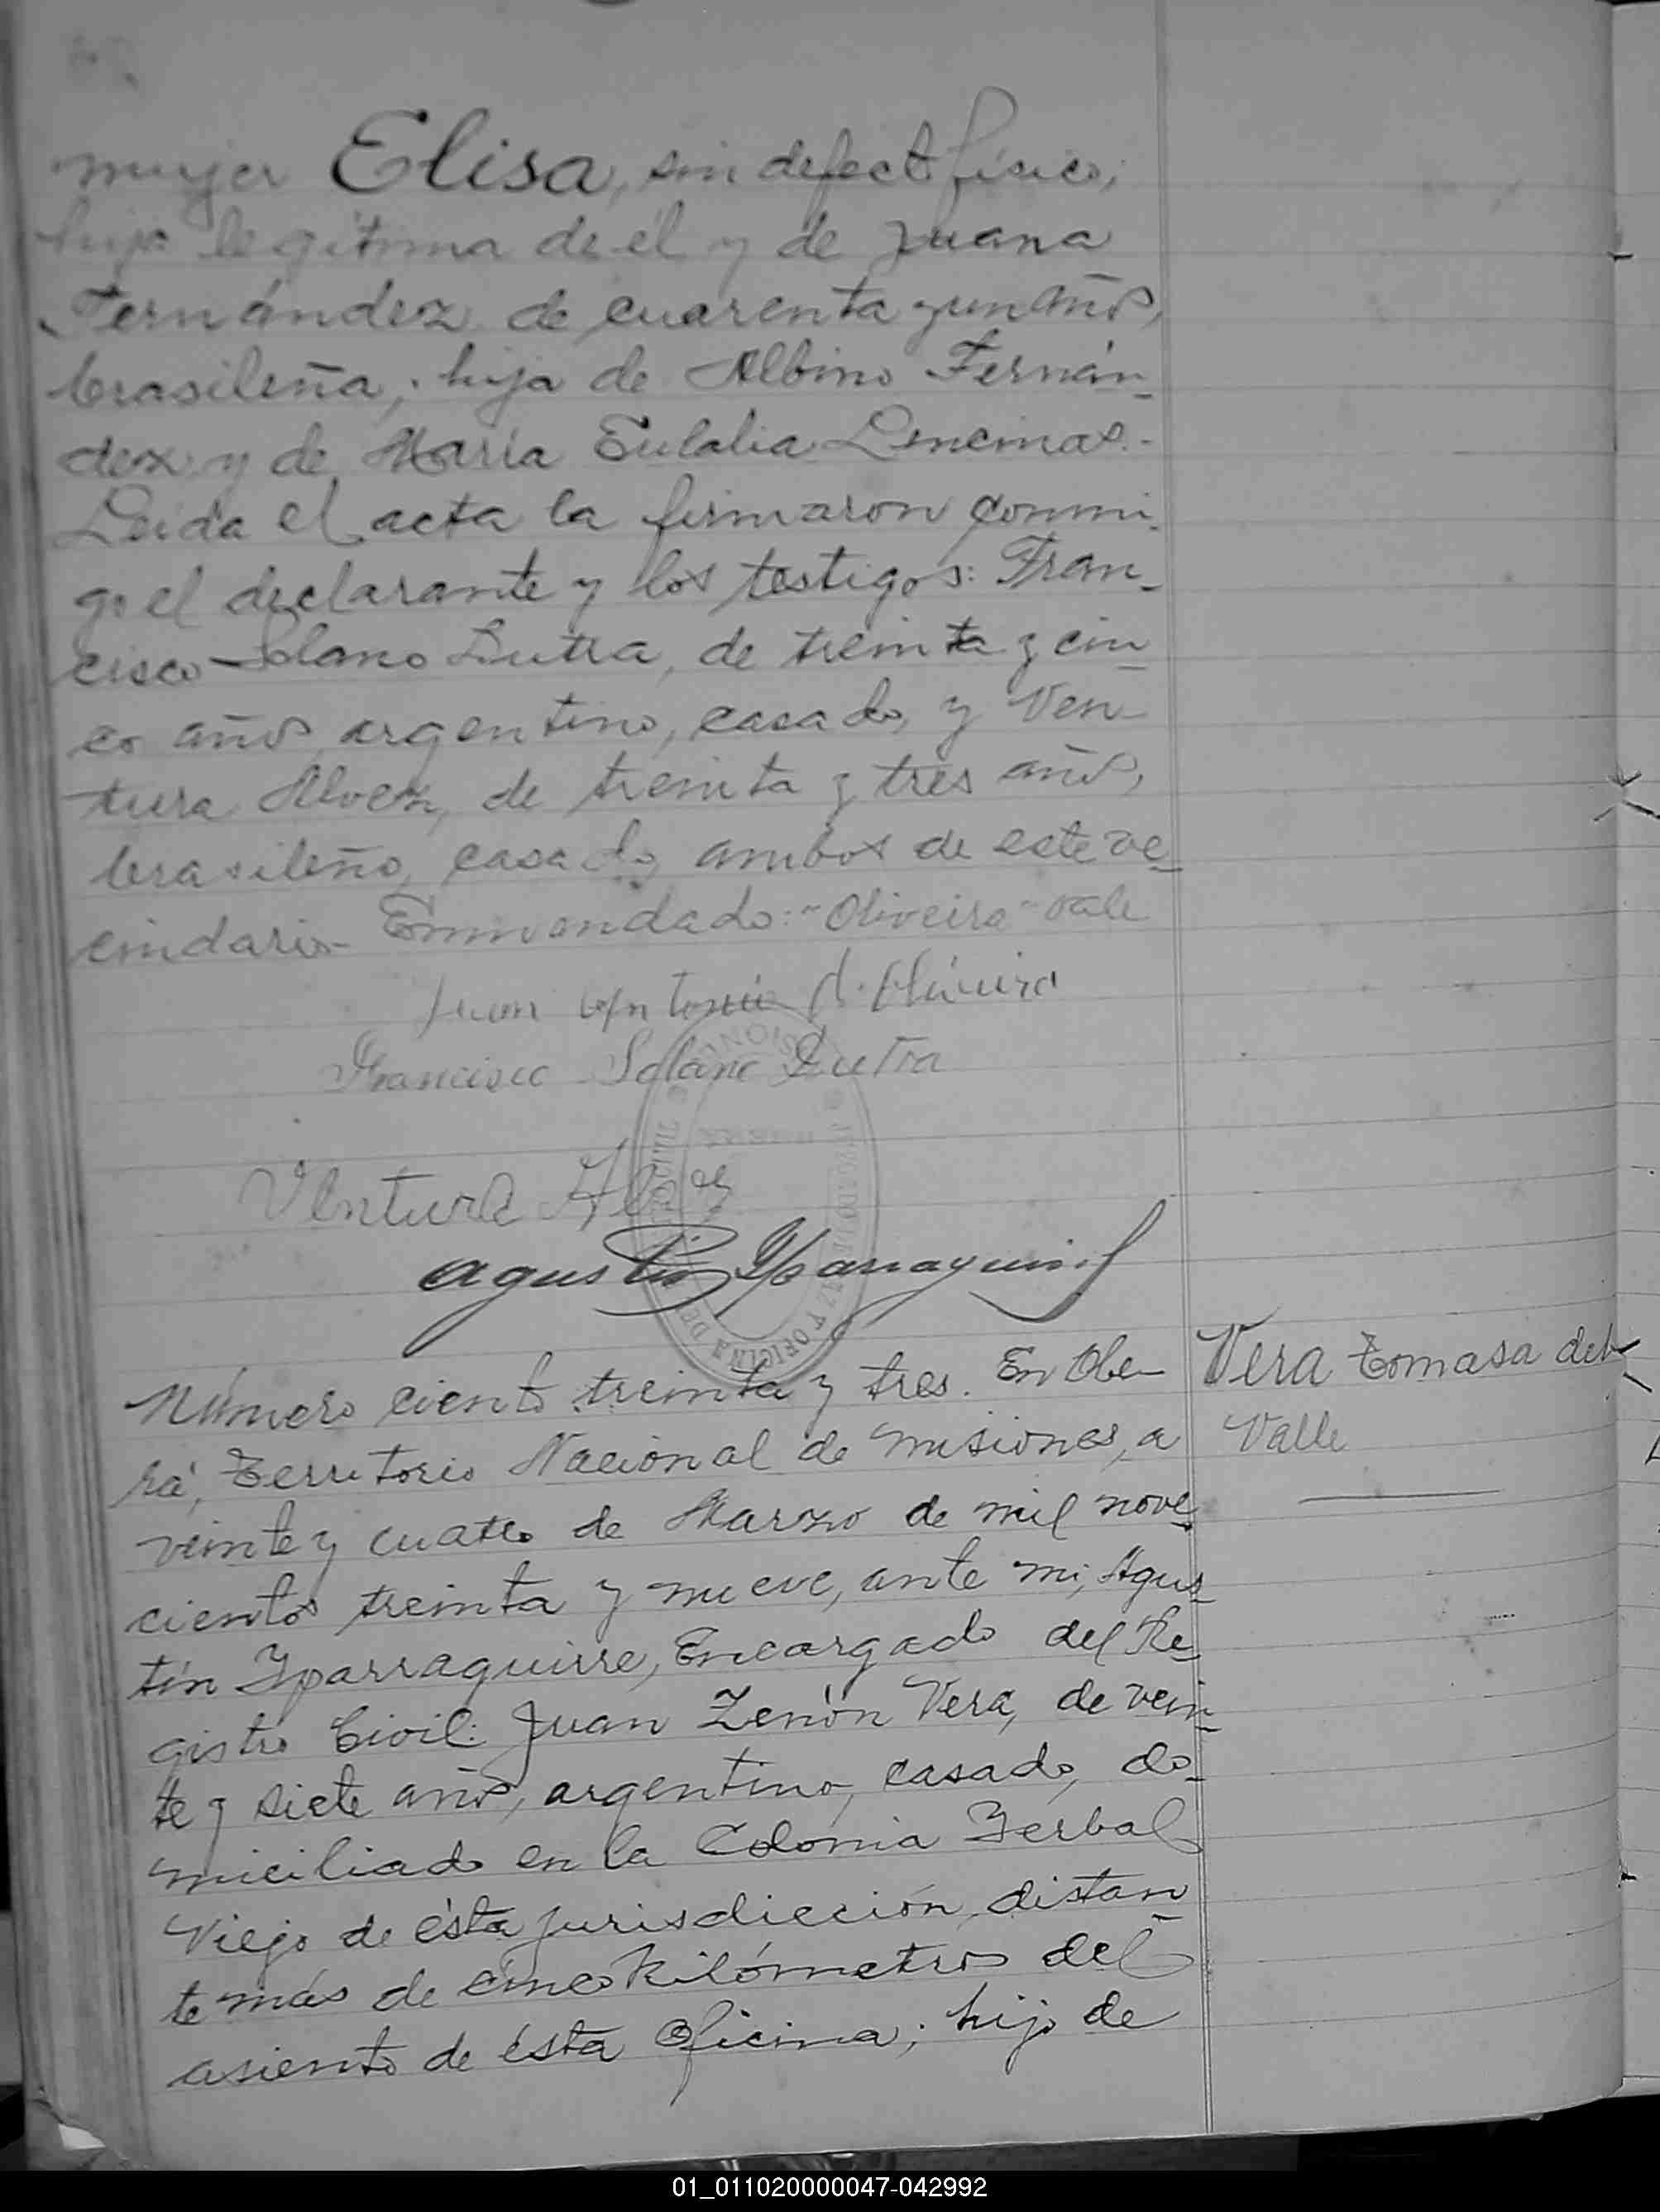 mujer Elisa, sin defecto físico;
hija legítima de él y de Juana
Fernández de cuarenta y un años,
brasileña, hija de Albino Fernán-
dez y de María Eulalia Lencinas.-
Leída el acta la firmaron conmi-
go el declarante y los testigos: Fran-
cisco Solano Dutra, de treinta y cin-
co años, argentino, casado, y Ven-
tura Alvez, de treinta y tres años,
brasileño, casado, ambos de este ve-
cindario- Enmendado:-"Oliveira"-vale
Juan Antonio d. Oliveira
Francisco Solano Dutra
Ventura Alvez
Agustin Yparraguirre
Número ciento treinta y tres. En Obe-
rá, Territorio Nacional de Misiones, a
veinte y cuatro de Marzo de mil nove-
cientos treinta y nueve, ante mi, Agus-
tín Yparraguirre, Encargado del Re-
gistro Civil: Juan Zenón Vera, de vein-
te y siete años, argentino, casado, do-
miciliado en la Colonia Yerbal
Viejo de ésta jurisdicción, distan-
te más de cinco kilómetros del
asiento de ésta Oficina; hijo de
Vera Tomasa del
Valle
01_011020000047-042992